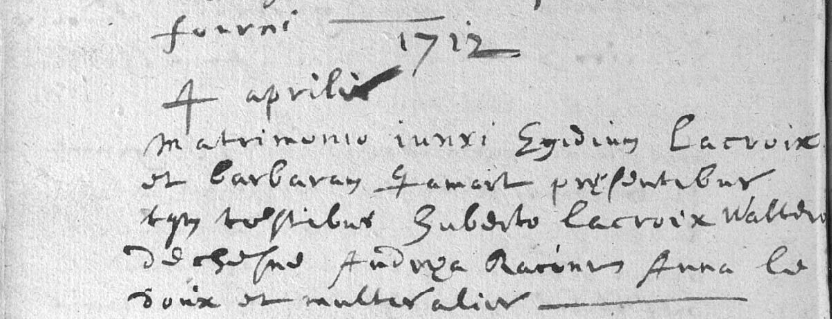 fourni
1712
4 aprilis
matrimonio iunxi Egidium Lacroix
et barbaram Hamart presentibus
tqm testibus Huberto Lacroix Waltero
dechesne Andrea Racinus Anna le
doux et multis aliis